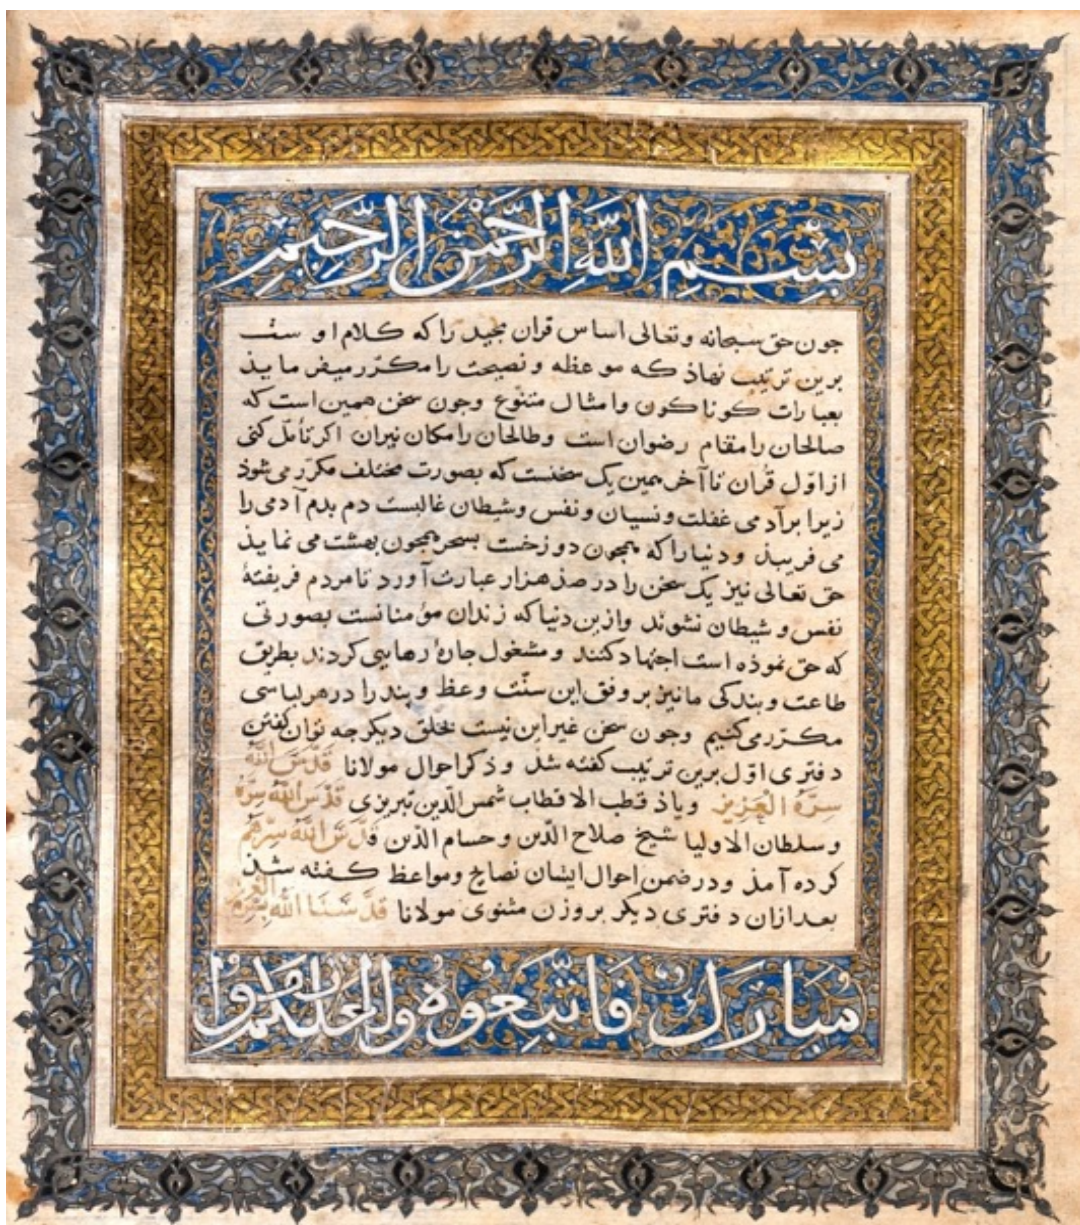 بِسْمِ اللَّهِ الرَّحْمٰنِ الرَّحِيمِ
جون حق سبحانه وتعالی اساس قران مجید را که کلام او ست
برین ترتیب نهاذ که موعظه و نصیحت را مکرّر میفرمایذ
بعبارات کوناکون وامثال متنوع وجون سخن همین است که
صالحان را مقام رضوان است وطالحان را مکان نیران اکر تأمّل کنی
از اوّل قُران تا آخر همین یک سخنست که بصورت مختلف مکرّر می شوذ
زیرا بر آدمی غفلت ونسیان ونفس وشیطان غالبست دم بدم آدمی را
می فریبذ ودنیا را که همجون دوزخست بسحر همجون بهشت می نمایذ
حق تعالی نیز یک سخن را در صذ هزار عبارت آورد تا مردم فریفتهٔ
نفس و شیطان نشوند وازین دنیا که زندان مؤمنانست بصورتی
که حق نموذه است اجتهاد کنند و مشغول جارهٔ رهایی کردند بطریق
طاعت وبندکی ما نیز بر وفق این سنّت وعظ وبند را در هر لباسی
مکرّر می کنیم وجون سخن غیر این نیست بخلق دیکر جه توان کفتن
دفتری اوّل برین ترتیب کفته شذ وذکر احوال مولانا قَدَّسَ اللّٰه
سِرَّهُ الْعَزِیز ویاذ قطب الاقطاب شمس الدین تبریزی قَدَّسَ اللّٰه سِرَّهُ
وسلطان الاولیا شیخ صلاح الدّین وحسام الدّین قَدَّسَ اللّٰه سِرَّهُم
کرده آمذ ودر ضمن احوال ایشان نصایح ومواعظ کفته شذ
بعد ازان دفتری دیکر بر وزن مثنوی مولانا قدَّسَنَا اللّٰه بسِرِّهِ العَزِیز
مُبَارَكٌ فَاتَّبِعُوهُ وَاتَّقُوا لَعَلَّكُمْ